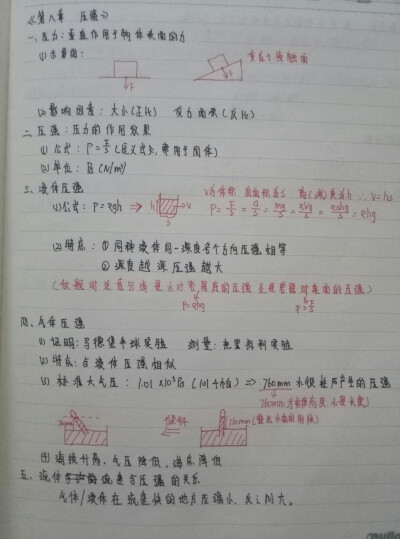 《第八章 压强》
一、压力：垂直作用于物体表面的力
(1) 示意图：
垂直于接触面
F
F
(2) 影响因素：大小(正比) 受力面积(反比)
二、压强：压力的作用效果
(1) 公式：P=F/S (定义式, 常用于固体)
(2) 单位：Pa (N/m²)
三、液体压强
V为体积 底面积为S 高(深)度为h ∴V=hs
(1) 公式：P=ρgh ⇒ h V S P=F/S=G/S=mg/S=ρVg/S=ρshg/S=ρhg
(2) 特点：① 同种液体同一深度各个方向压强相等
② 深度越深压强越大
(做题时注意分清是水对容器底的压强 还是容器对桌面的压强)
P=ρgh P=F/S
四、气体压强
(1) 证明：马德堡半球实验 测量：托里拆利实验
(2) 特点：与液体压强相似
(3) 标准大气压：1.01×10⁵Pa ⇒ 760mm水银柱所产生的压强
760mm为竖直高度, 不是长度)
760mm 倾斜 760mm
(4) 海拔升高, 气压降低, 沸点降低
五、流体流速与压强的关系
气体/液体在流速快的地方压强小, 反之则大。